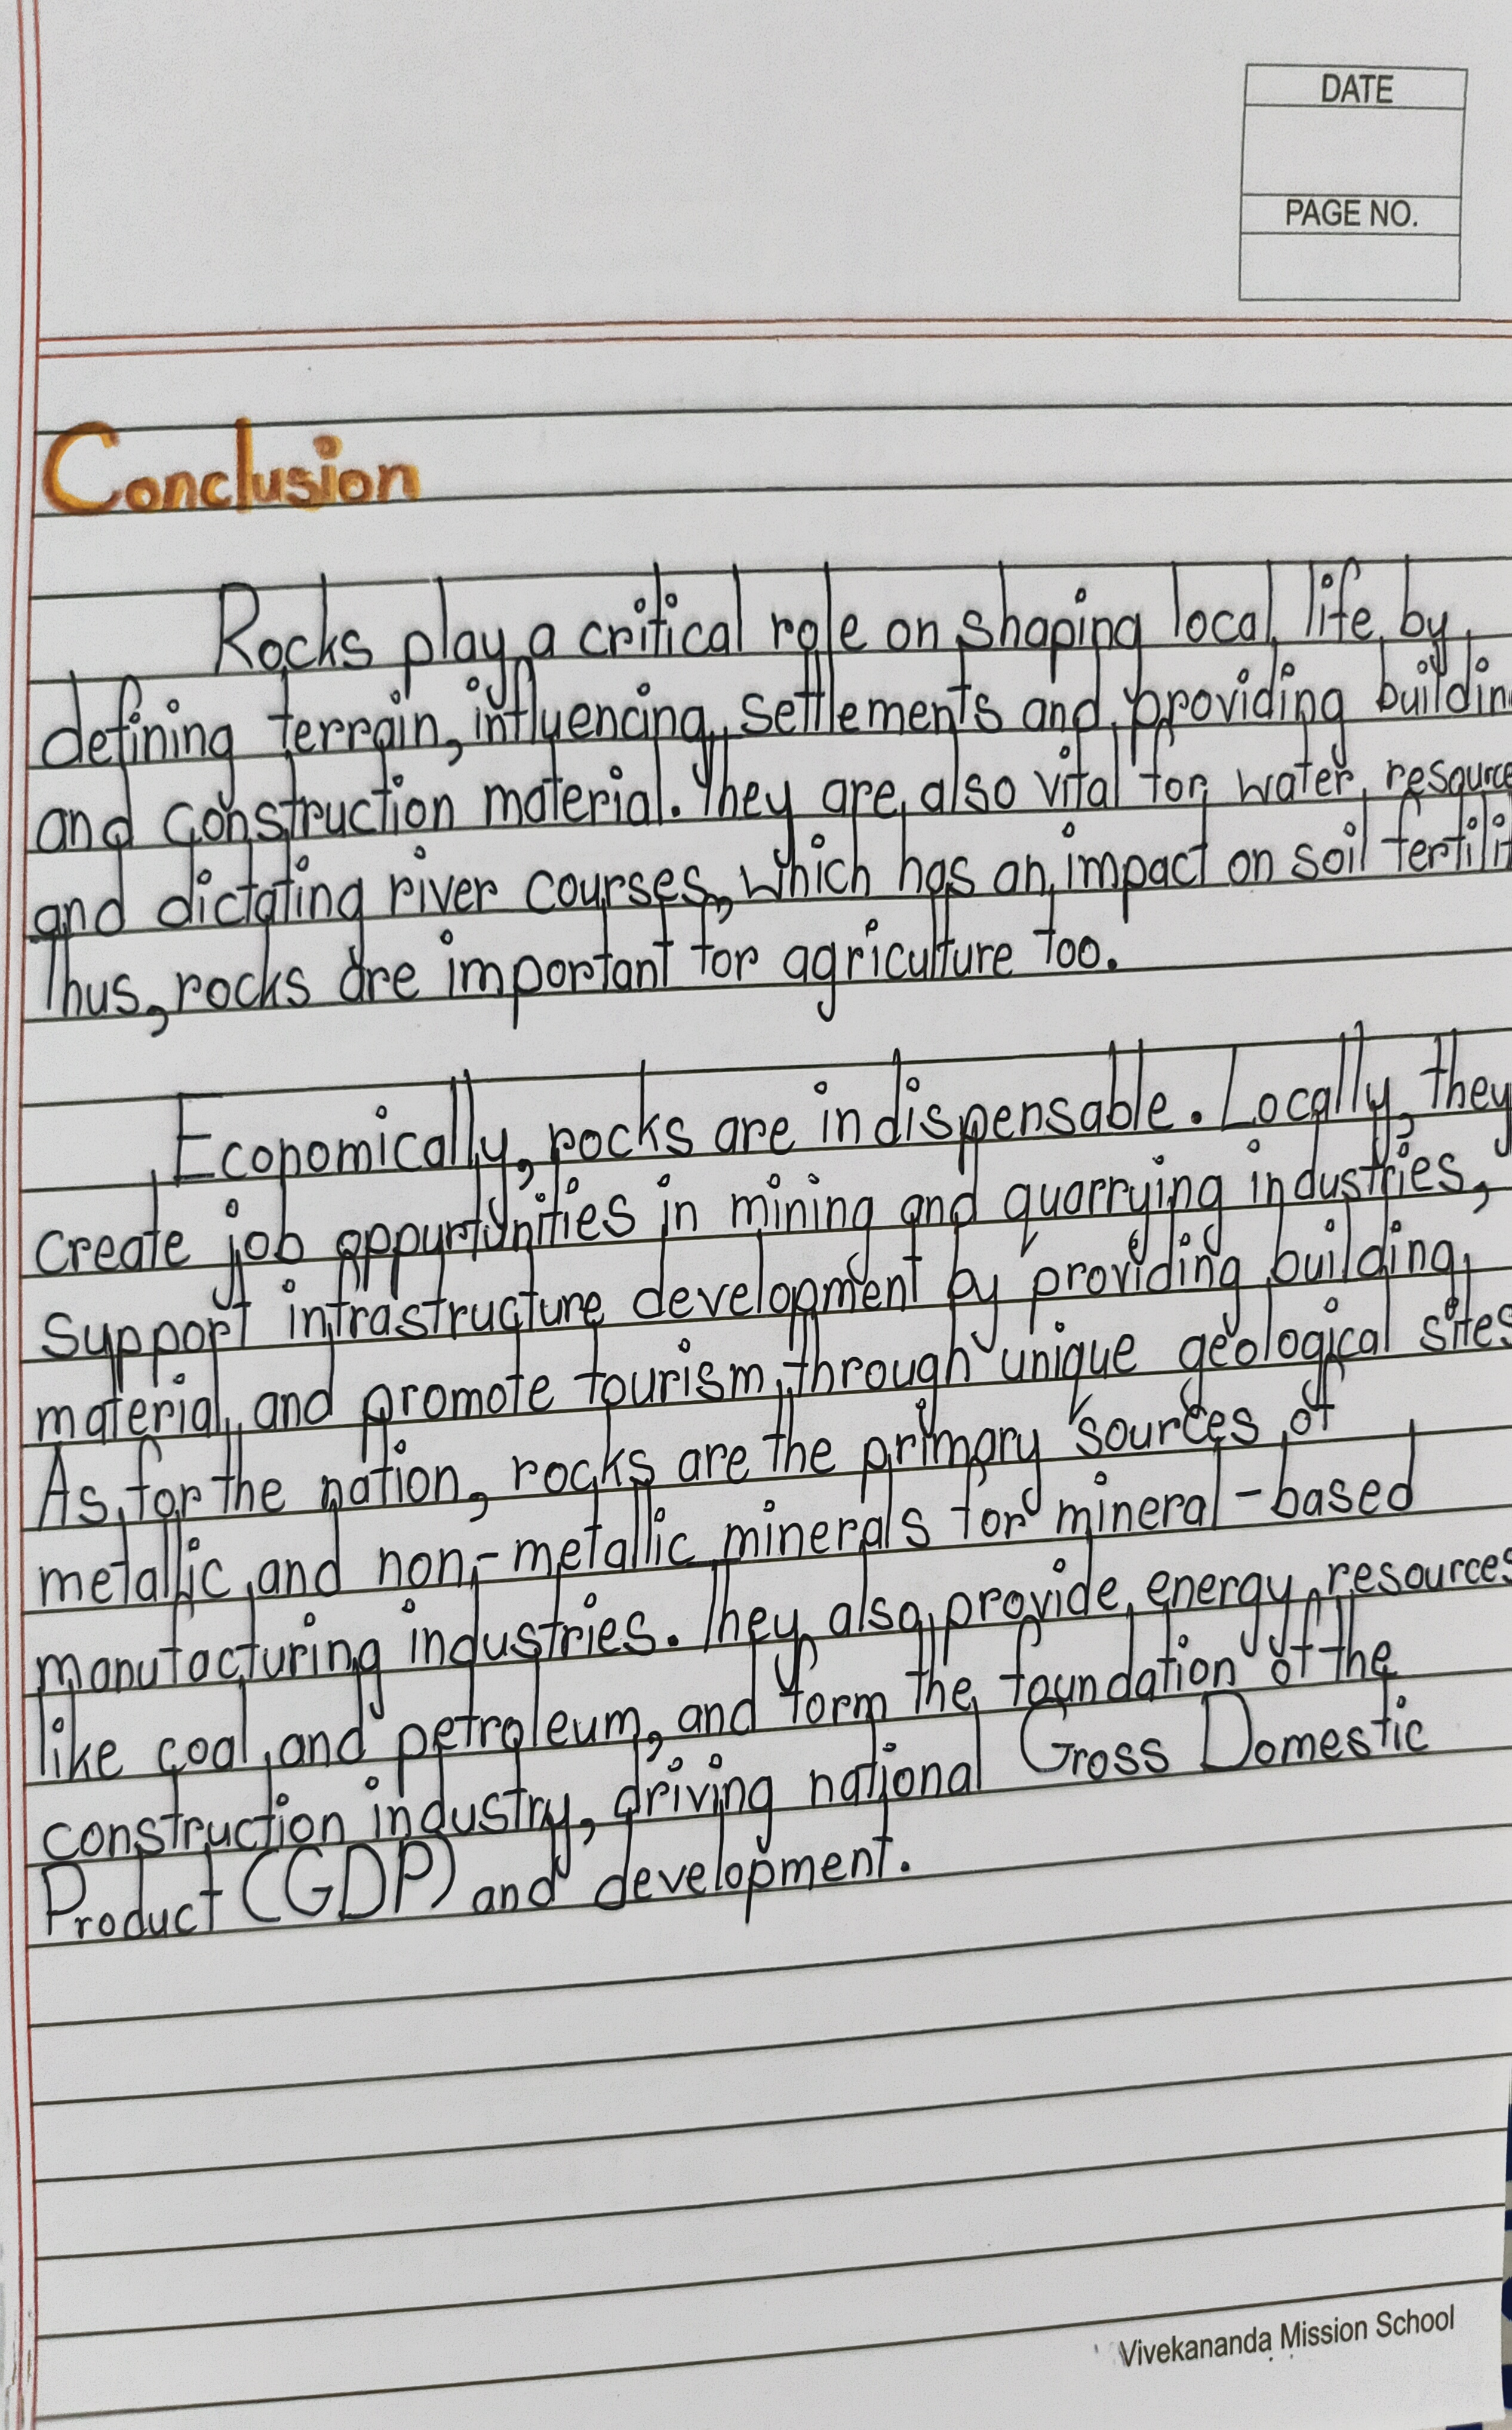 DATE
PAGE NO.
Conclusion
Rocks play a critical role on shaping local life by
defining terrain, influencing settlements and providing buildin
and construction material. They are also vital for water resource
and dictating river courses, which has an impact on soil fertilit
Thus, rocks are important for agriculture too.
Economically, rocks are indispensable. Locally, they
create job oppurtunities in mining and quarrying industries,
support infrastructure development by providing building
material and promote tourism through unique geological sites
As for the nation, rocks are the primary sources of
metallic and non-metallic minerals for mineral-based
manufacturing industries. They also provide energy resources
like coal and petroleum, and form the foundation of the
construction industry, driving national Gross Domestic
Product (GDP) and development.
Vivekananda Mission School